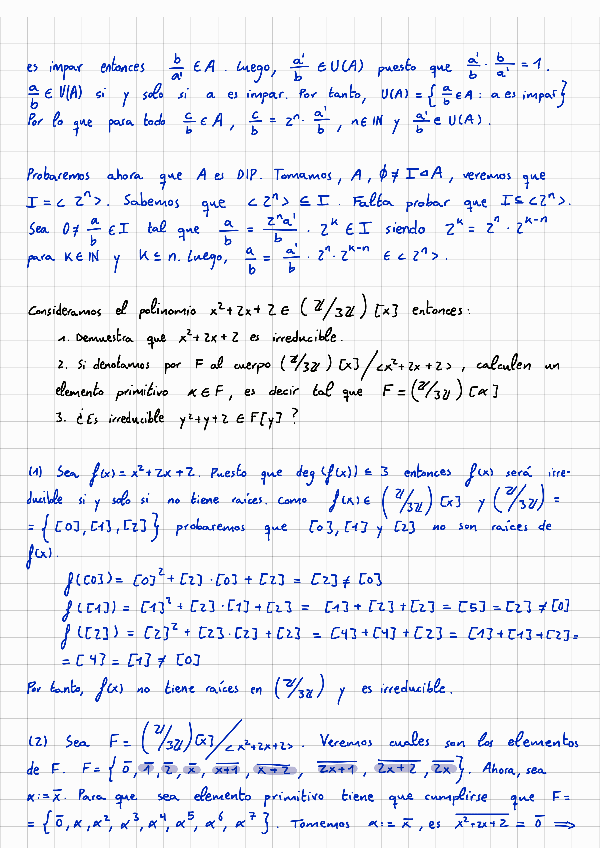 es impar entonces b/a' ∈ A. Luego, a'/b ∈ U(A) puesto que a'/b · b/a' = 1.
a/b ∈ U(A) si y solo si a es impar. Por tanto, U(A) = { a/b ∈ A : a es impar}
Por lo que para todo c/b ∈ A, c/b = 2ⁿ · a'/b, n ∈ ℕ y a'/b ∈ U(A).
Probaremos ahora que A es DIP. Tomamos, A, ∅ ≠ I ◁ A, veremos que
I = < 2ⁿ >. Sabemos que < 2ⁿ > ⊆ I. Falta probar que I ⊆ < 2ⁿ >.
Sea 0 ≠ a/b ∈ I tal que a/b = 2ⁿa'/b · 2ᵏ ∈ I siendo 2ᵏ = 2ⁿ · 2ᵏ⁻ⁿ
para k ∈ ℕ y k ≤ n. Luego, a/b = a'/b · 2ⁿ · 2ᵏ⁻ⁿ ∈ < 2ⁿ >.
Consideramos el polinomio x²+2x+2 ∈ (ℤ/3ℤ)[x] entonces:
1. Demuestra que x²+2x+2 es irreducible.
2. Si denotamos por F al cuerpo (ℤ/3ℤ)[x]/<x²+2x+2>, calculen un
elemento primitivo α ∈ F, es decir tal que F = (ℤ/3ℤ)[α]
3. ¿Es irreducible y²+y+2 ∈ F[y]?
(1) Sea f(x) = x²+2x+2. Puesto que deg(f(x)) ≤ 3 entonces f(x) será irre-
ducible si y solo si no tiene raíces. Como f(x) ∈ (ℤ/3ℤ)[x] y (ℤ/3ℤ) =
= {[0],[1],[2]} probaremos que [0],[1] y [2] no son raíces de
f(x).
f([0]) = [0]² + [2]·[0] + [2] = [2] ≠ [0]
f([1]) = [1]² + [2]·[1] + [2] = [1] + [2] + [2] = [5] = [2] ≠ [0]
f([2]) = [2]² + [2]·[2] + [2] = [4] + [4] + [2] = [1] + [1] + [2] =
= [4] = [1] ≠ [0]
Por tanto, f(x) no tiene raíces en (ℤ/3ℤ) y es irreducible.
(2) Sea F = (ℤ/3ℤ)[x]/<x²+2x+2>. Veremos cuales son los elementos
de F. F = { 0̅, 1̅, 2̅, x̅, x̅+̅1̅, x̅+̅2̅, 2̅x̅+̅1̅, 2̅x̅+̅2̅, 2̅x̅}. Ahora, sea
α := x̅. Para que sea elemento primitivo tiene que cumplirse que F =
= {0̅, α, α², α³, α⁴, α⁵, α⁶, α⁷}. Tomemos α := x̅, es x̅²̅+̅2̅x̅+̅2̅ = 0̅ ⟹